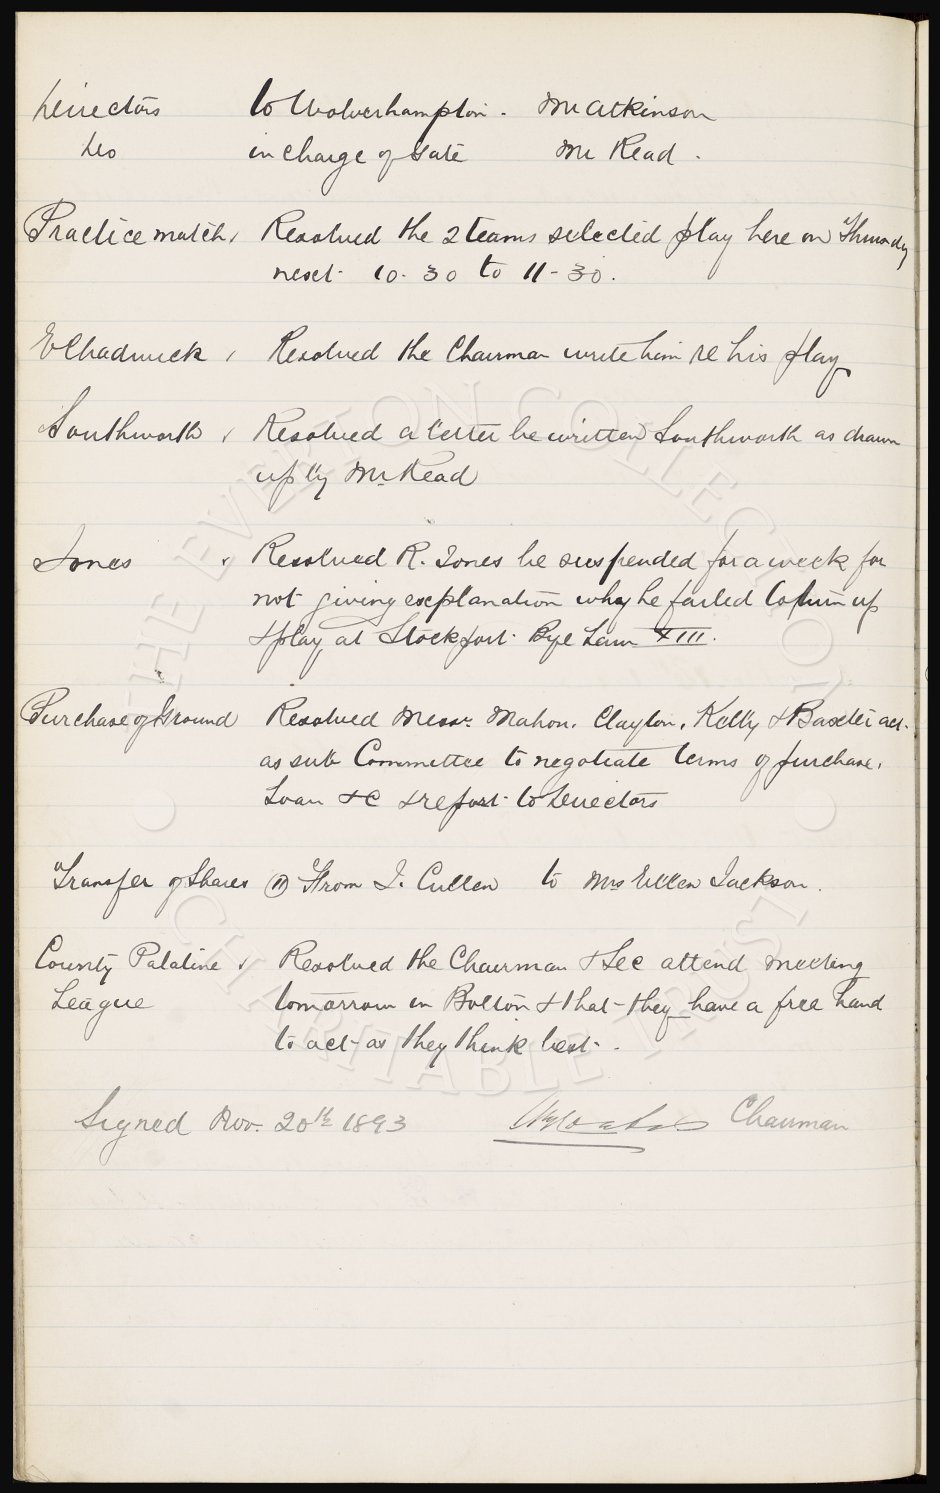 Directors to Wolverhampton. Mr Atkinson
Do in charge of Gate Mr Read.
Practice match. Resolved the 2 teams selected play here on Thursday
next 10.30 to 11-30.
E Chadwick. Resolved the Chairman write him re his play
Southworth. Resolved a letter be written Southworth as drawn
up by Mr Read
Jones. Resolved R. Jones be suspended for a week for
not giving explanation why he failed to turn up
& play at Stockport. Bye Law XIII.
Purchase of Ground Resolved Messrs Mahon. Clayton. Kelly & Baxter act
as sub Committee to negotiate terms of purchase.
Loan &c & report to Directors
Transfer of Shares (11) From J. Cullen to Mrs Ellen Jackson.
County Palatine. Resolved the Chairman & Sec attend meeting
League tomorrow in Bolton & that they have a free hand
to act as they think best.
Signed Nov. 20th 1893 Chairman
THE EVERTON COLLECTION
CHARITABLE TRUST